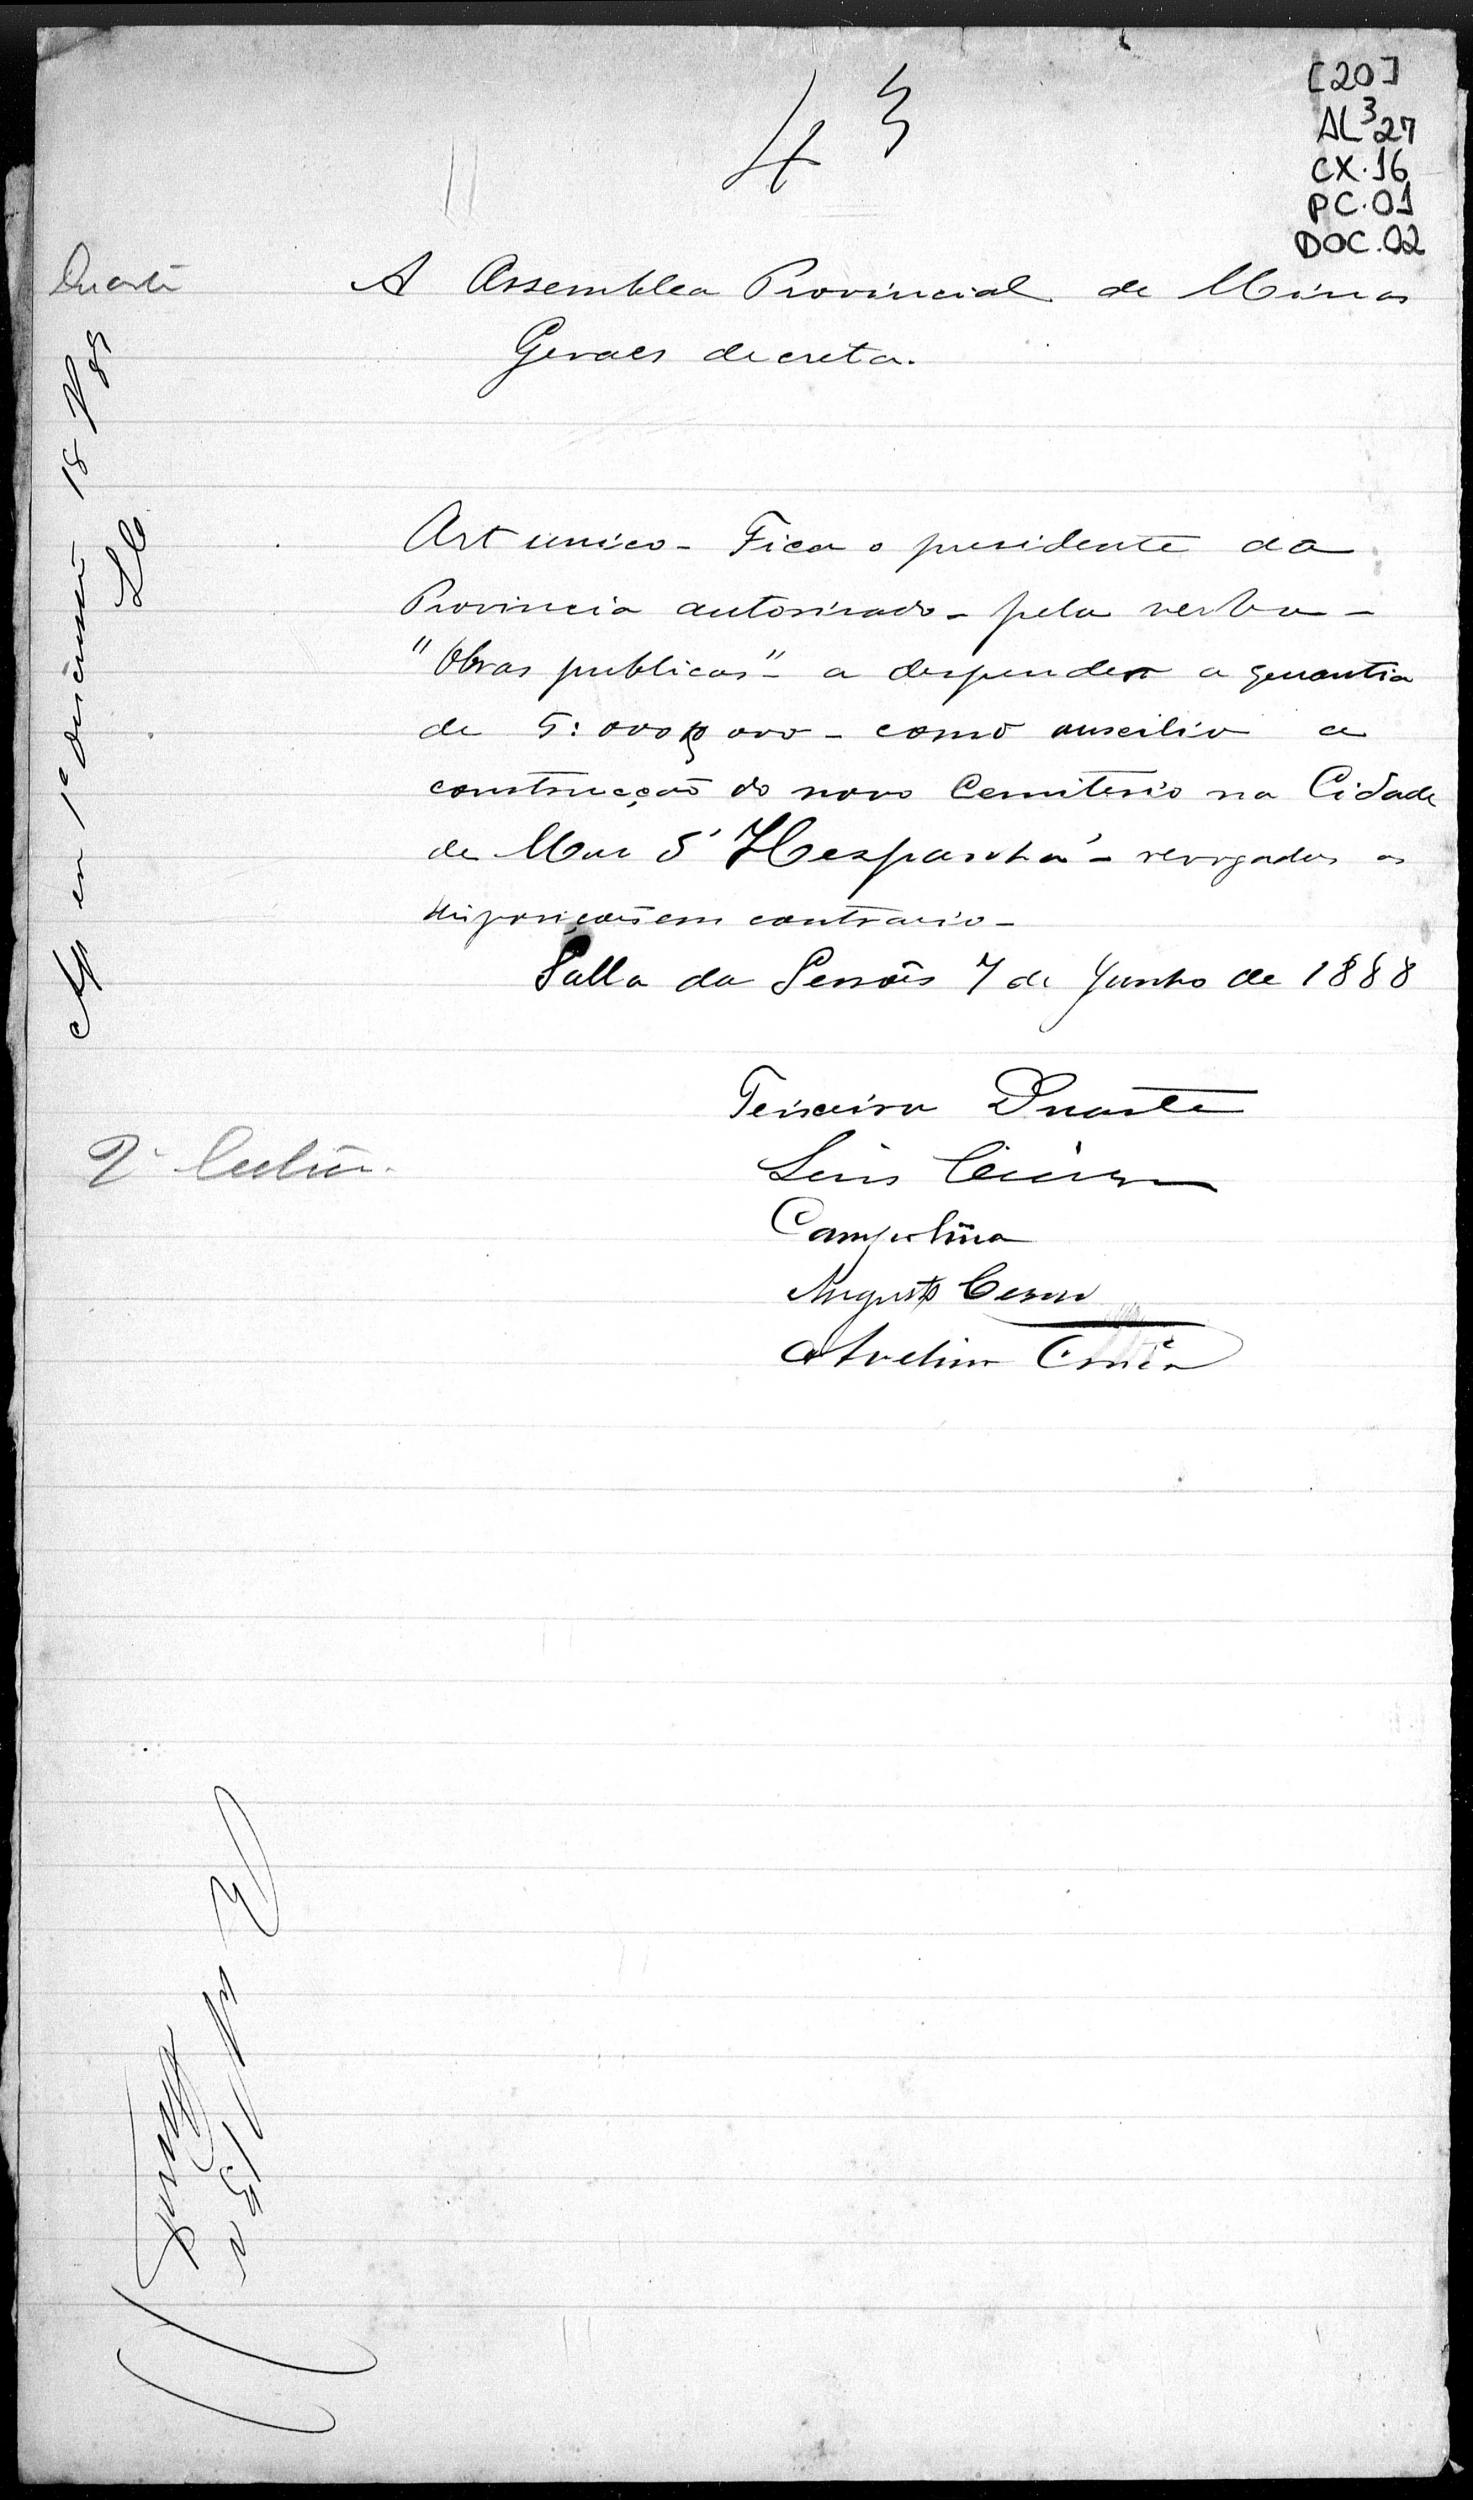 43
[20]
AL³27
CX.16
PC.01
DOC.02
Duarte
A Assemblea Provincial de Minas
Geraes decreta.
Art unico - Fica o presidente da
Provincia autorisado - pela verba -
"Obras publicas" - a despender a quantia
de 5:000$000 - como auscilio a
construcção do novo Cemiterio na Cidade
de Mar d'Hespanha - revogadas as
disposições em contrario -
Salla da Sessões 7 de Junho de 1888
Teixeira Duarte
Luis
Campolina
Augusto Cesar
Avelino
Ap em 1ª discussão 18
2ª